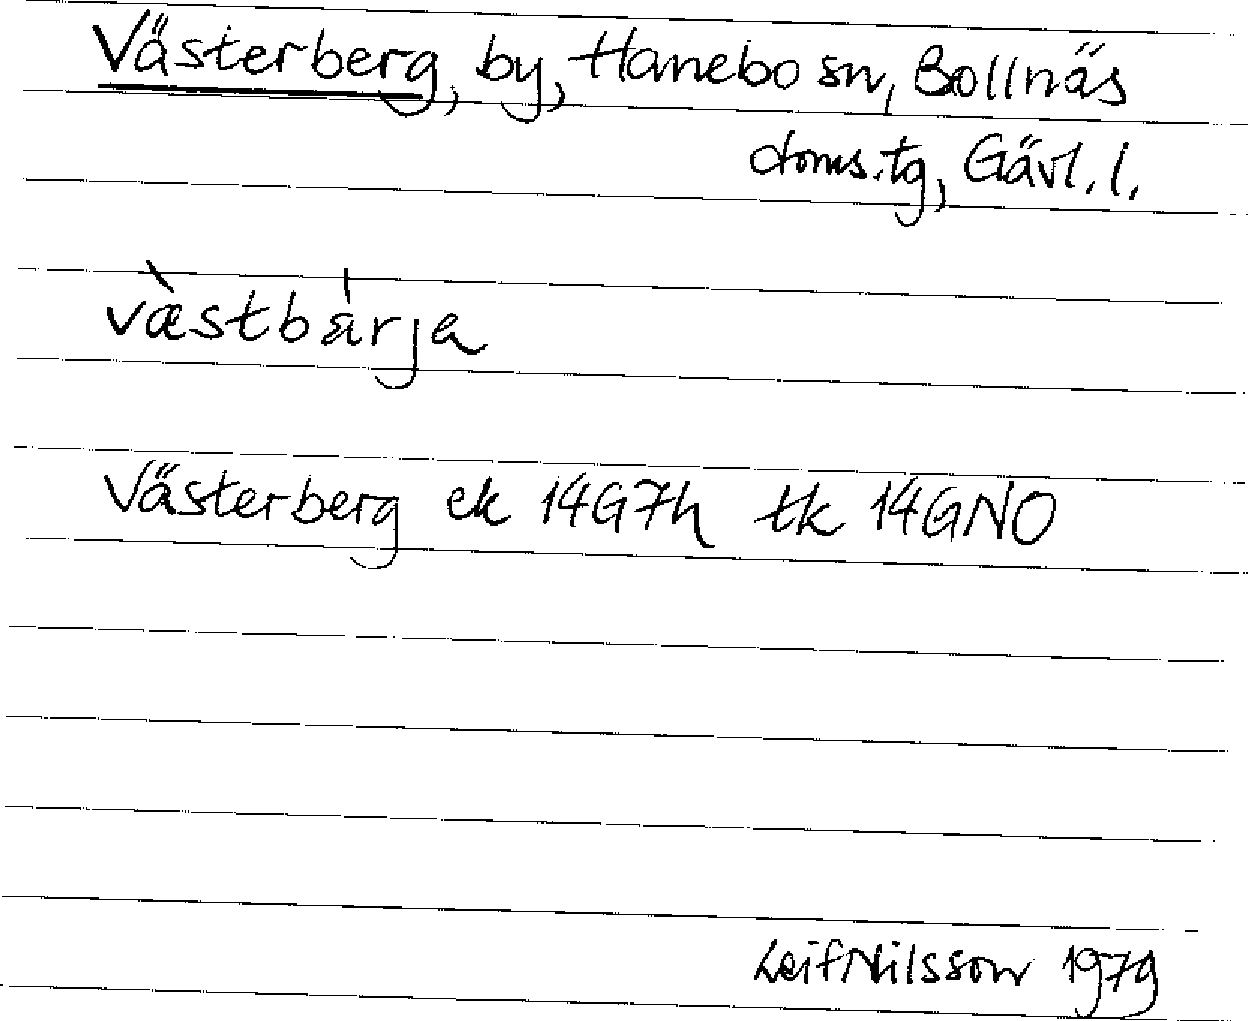 Västerberg, by, Hanebo sn, Bollnäs
doms.tg, Gävl. l.
væ̀stbá̈rja
Västerberg ek 14G7h tk 14GNO
Leif Nilsson 1979